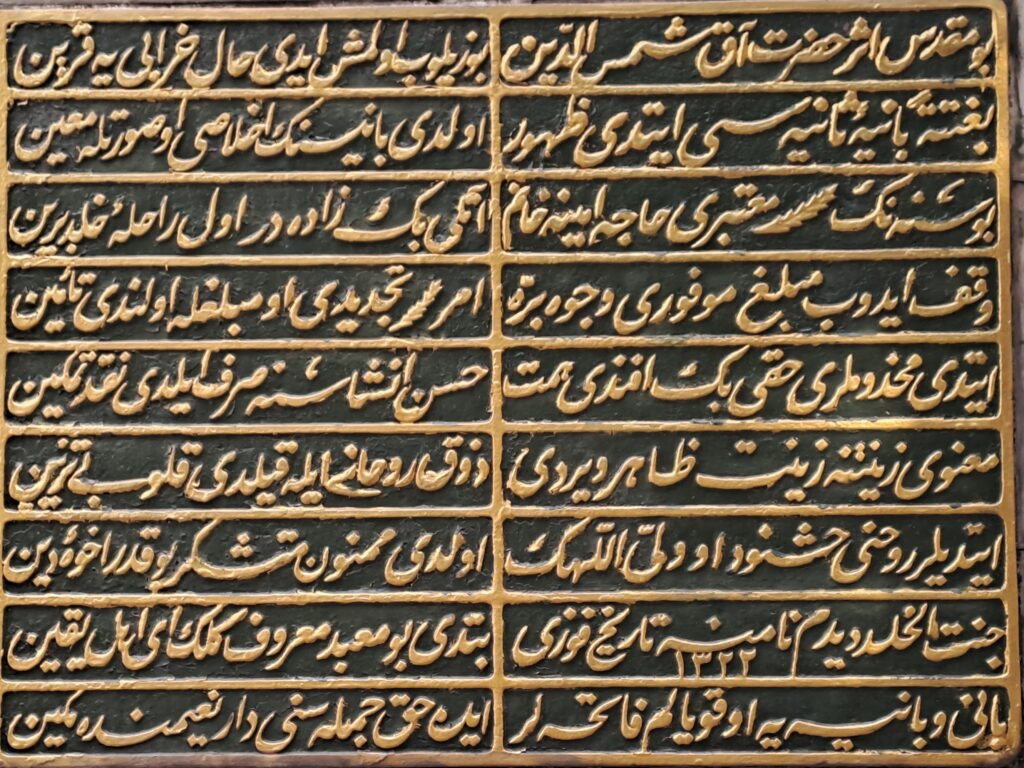 بو مقدس اثر حضرت آق شمس الدین
بوزیلوب اولمش ایدی حال خرابی یه قرین
بغتة بانیهٔ ثانیه سی ایتدی ظهور
اولدی بانینك اخلاصی او صورتله معین
بوسنه نك معتبری حاجه امینه خانم
بك زاده در اول راحلهٔ خلد برین
وقف ایدوب مبلغ موفوری وجوه بره
امر تجدیدی او مبلغله اولندی تأمین
ایتدی مخدوملری حقی بك افندی همت
حسن انشاسنه صرف ایلدی نقد تمکین
معنوی زینتنه زینت ظاهر ویردی
ذوق روحانی ایله قیلدی قلوبی تزیین
ایتدیلر روحنی خشنود او ولیّ اللّهك
اولدی ممنون متشکر بو قدر اخوهٔ دین
جنت الخلد دیدم نامنه تاریخ فوزی
١٣٢٢
بتدی بو معبد معروف کلك ای اهل یقین
بانی و بانیه یه اوقویالم فاتحه لر
ایده حق جمله سنی دار نعیمنده مکین